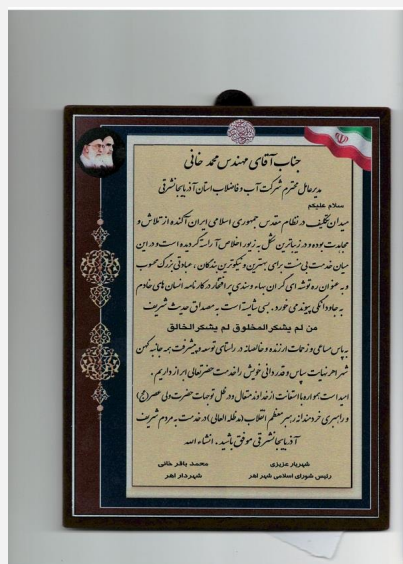 جناب آقای مهندس محمد خانی
مدیرعامل محترم شرکت آب و فاضلاب استان آذربایجانشرقی
سلام علیکم
میدان تکلیف در نظام مقدس جمهوری اسلامی ایران آکنده از تلاش و
مجاهدت بوده و در زیباترین شکل به زیور اخلاص آراسته گردیده است و در این
میان خدمت بی منت برای بهترین و نیکوترین بندگان، عبادتی بزرگ محسوب
و به عنوان ره توشه ای گران بها و سندی پر افتخار در کارنامه انسان های خادم
به جاودانگی پیوند می خورد. بسی شایسته است به مصداق حدیث شریف
من لم یشکر المخلوق لم یشکر الخالق
بپاس مساعی و زحمات ارزنده و خالصانه در راستای توسعه و پیشرفت همه جانبه کهن
شهر اهر نهایت سپاس و قدردانی خویش را خدمت حضرتعالی ابراز داریم.
امید است همواره با استعانت از خداوند متعال و در ظل توجهات حضرت ولی عصر (عج)
و راهبری خردمندانه رهبر معظم انقلاب (مدظله العالی) در خدمت به مردم شریف
آذربایجانشرقی موفق باشید. انشاء الله
شهریار عزیزی
رئیس شورای اسلامی شهر اهر
محمد باقر خانی
شهردار اهر